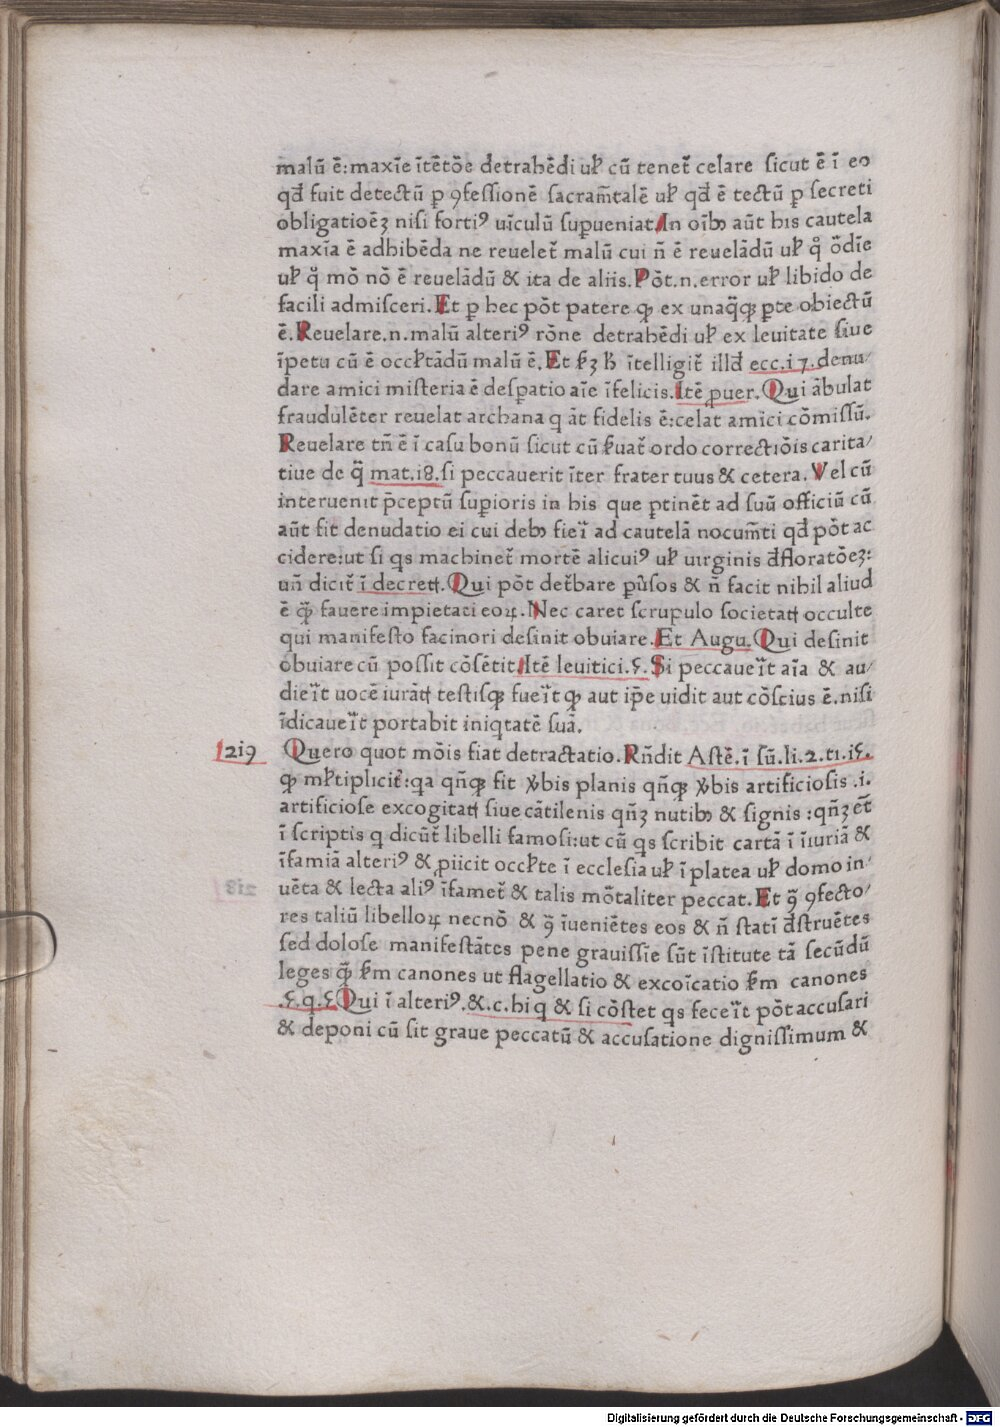 malū ē:maxīe ītētōe detrahēdi uł cū tenet̄ celare sicut ē ī eo
qđ fuit detectū ꝑ ꝯfessionē sacram̄talē uł qđ ē tectū ꝑ secreti
obligatioēꝫ nisi fortiꝰ uīculū suꝑueniat.In oībꝫ aūt his cautela
maxīa ē adhibēda ne reuelet̄ malū cui n̄ ē reuelādū uł qͦ ōdīe
uł qͦ mō nō ē reuelādū & ita de aliis.Pōt.n.error uł libido de
facili admisceri.Et ꝑ hec pōt patere ꝙ ex unaq̄ꝙ ꝑte obiectū
ē.Reuelare.n.malū alteriꝰ rōne detrahēdi uł ex leuitate siue
īpetu cū ē occłtādū malū ē.Et ẜꝫ ħ ītelligit̄ illđ ecc.i7.denu/
dare amici misteria ē desꝑatio aīe īfelicis.Itē ꝓuer.Qui ābulat
fraudulēter reuelat archana q āt fidelis ē:celat amici cōmissū.
Reuelare tn̄ ē ī casu bonū sicut cū ẜuat̄ ordo correctiōis carita/
tiue de q̄ mat.i8.si peccauerit īter frater tuus & cetera.Vel cū
interuenit p̄ceptū suꝑioris in his que ꝑtinēt ad suū officiū cū
aūt fit denudatio ei cui debꝫ fieī ad cautelā nocum̄ti qđ pōt ac
cidere:ut si qs machinet̄ mortē alicuiꝰ uł uirginis đfloratōeꝫ:
un̄ dicit̄ ī decretꝭ.Qui pōt det̄bare ꝑuͥsos & n̄ facit nihil aliud
ē ꝙ̄ fauere impietati eoꝝ.Nec caret scrupulo societatꝭ occulte
qui manifesto facinori desinit obuiare.Et Augu.Qui desinit
obuiare cū possit cōsētit.Itē leuitici.5.Si peccaueīt aīa & au/
dieīt uocē iurātꝭ testisꝙ fueīt ꝙ aut ip̄e uidit aut cōscius ē.nisi
īdicaueīt portabit iniqtatē suā.
2i9 Quero quot mōis fiat detractatio.Rn̄dit Astē.ī sū.li.2.ti.i5.
ꝙ młtiplicit̄:qa qn̄ꝙ fit v̾bis planis qn̄ꝙ v̾bis artificiosis .i.
artificiose excogitatꝭ siue cātilenis qn̄ꝫ nutibꝫ & signis :qn̄ꝫ et̄
ī scriptis q dicūt̄ libelli famosi:ut cū qs scribit cartā ī īiuriā &
īfamiā alteriꝰ & ꝓiicit occłte ī ecclesia uł ī platea uł domo in/
uēta & lecta aliꝰ īfamet̄ & talis mōtaliter peccat.Et q̄ ꝯfecto/
res taliū libelloꝝ necnō & q̄ īueniētes eos & n̄ statī đstruētes
sed dolose manifestātes pene grauissīe sūt īstitute tā secūdū
leges ꝙ̄ ẜm canones ut flagellatio & excoīcatio ẜm canones
.5.q.5.Qui ī alteriꝰ.&.c.hi q & si cōstet qs feceīt pōt accusari
& deponi cū sit graue peccatū & accusatione dignissimum &
Digitalisierung gefördert durch die Deutsche Forschungsgemeinschaft - DFG